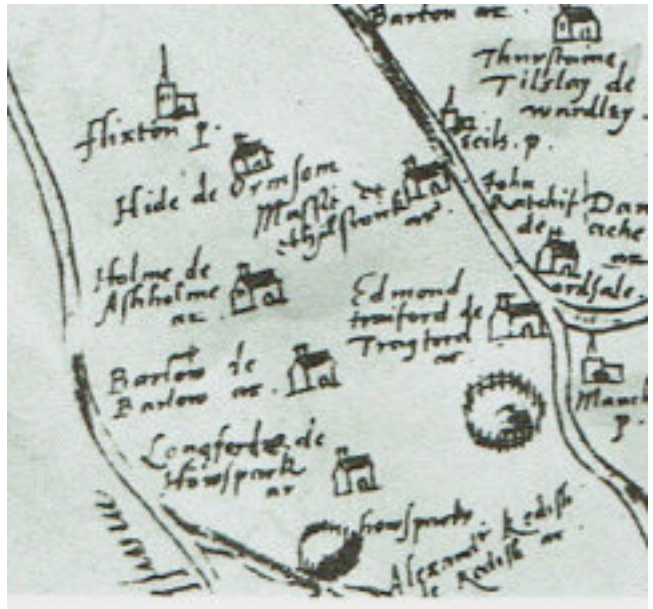 Barton ar.
Thurstaine
Tilsley de
wardley
flixton p.
Hide de Urmsom
Massie
John
Ratchif
de
ordsale.
Holme de
Ashholme
ar
Edmond
traiford de
Trayford
ar
Barlow de
Barlow ar.
Manch
p.
Longforde de
Howspark
ar
howspark
Alexandr Redish
de Redish ar